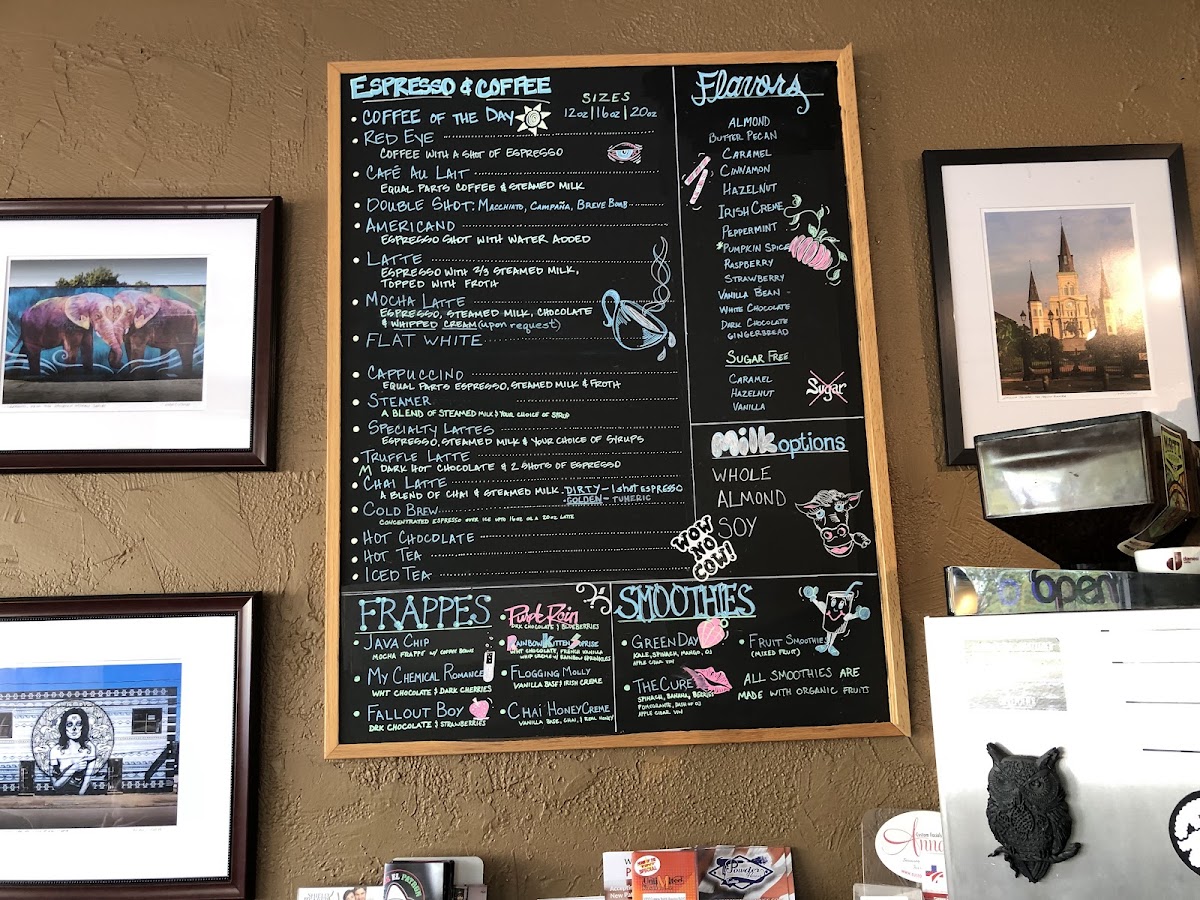 ESPRESSO & COFFEE
SIZES
12oz | 16oz | 20oz
• COFFEE OF THE DAY
• RED EYE
COFFEE WITH A SHOT OF ESPRESSO
• CAFÉ AU LAIT
EQUAL PARTS COFFEE & STEAMED MILK
• DOUBLE SHOT: MACCHIATO, CAMPAÑA, BREVE BOMB
• AMERICANO
ESPRESSO SHOT WITH WATER ADDED
• LATTE
ESPRESSO WITH 2/3 STEAMED MILK,
TOPPED WITH FROTH
• MOCHA LATTE
ESPRESSO, STEAMED MILK, CHOCOLATE
& WHIPPED CREAM (upon request)
• FLAT WHITE
• CAPPUCCINO
EQUAL PARTS ESPRESSO, STEAMED MILK & FROTH
• STEAMER
A BLEND OF STEAMED MILK & YOUR CHOICE OF SYRUP
• SPECIALTY LATTES
ESPRESSO, STEAMED MILK & YOUR CHOICE OF SYRUPS
• TRUFFLE LATTE
M DARK HOT CHOCOLATE & 2 SHOTS OF ESPRESSO
• CHAI LATTE
A BLEND OF CHAI & STEAMED MILK • DIRTY - 1 SHOT ESPRESSO
• GOLDEN - TUMERIC
• COLD BREW
CONCENTRATED ESPRESSO OVER ICE UPTO 16OZ OR A 20OZ LATTE
• HOT CHOCOLATE
• HOT TEA
• ICED TEA
Flavors
ALMOND
BUTTER PECAN
CARAMEL
CINNAMON
HAZELNUT
IRISH CREME
PEPPERMINT
*PUMPKIN SPICE
RASPBERRY
STRAWBERRY
VANILLA BEAN -
WHITE CHOCOLATE
DARK CHOCOLATE
GINGERBREAD
SUGAR FREE
CARAMEL
HAZELNUT
VANILLA
Sugar
Milk options
WHOLE
ALMOND
SOY
WOW
NO
COW!
FRAPPES
• JAVA CHIP
MOCHA FRAPPE w/ COFFEE BEANS
• MY CHEMICAL ROMANCE
WHT CHOCOLATE & DARK CHERRIES
• FALLOUT BOY
DRK CHOCOLATE & STRAWBERRIES
• Purple Rain
DRK CHOCOLATE & BLUEBERRIES
• RAINBOW KITTEN SURPRISE
WHT CHOCOLATE, FRENCH VANILLA
WHIP CREME w/ RAINBOW SPRINKLES
• FLOGGING MOLLY
VANILLA BASE & IRISH CREME
• CHAI HONEY CREME
VANILLA BASE, CHAI, & REAL HONEY
SMOOTHIES
• GREEN DAY
KALE, SPINACH, MANGO, OJ
APPLE CIDAR VIN
• THE CURE
SPINACH, BANANA, BERRIES
POMEGRANTE, DASH OF OJ
APPLE CIDAR VIN
• FRUIT SMOOTHIES
(MIXED FRUIT)
ALL SMOOTHIES ARE
MADE WITH ORGANIC FRUIT
open
EL PATRON
Powder
Anna